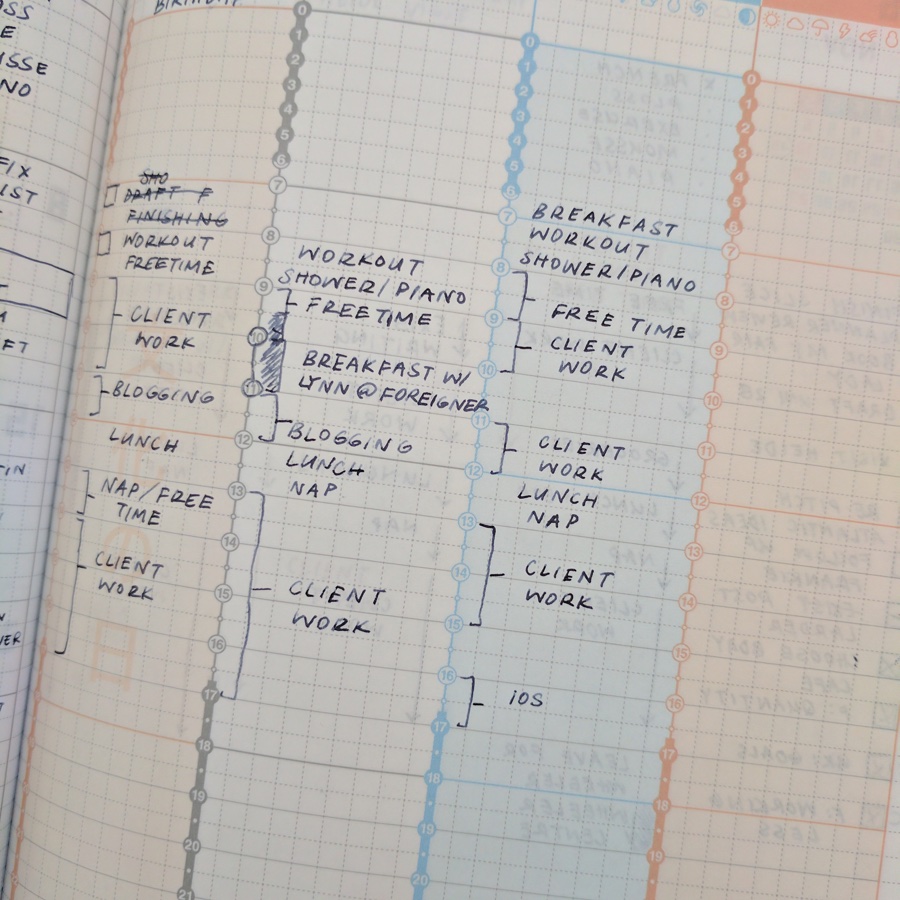 OSS
E
USSE
NO
FIX
LIST
FT
IN
BIRTHDAY
SHO
DRAFT F
FINISHING
WORKOUT
FREETIME
CLIENT
WORK
BLOGGING
LUNCH
NAP/FREE
TIME
CLIENT
WORK
0
1
2
3
4
5
6
7
8
9
10
11
12
13
14
15
16
17
18
19
20
21
WORKOUT
SHOWER/PIANO
FREETIME
BREAKFAST W/
LYNN @ FOREIGNER
BLOGGING
LUNCH
NAP
CLIENT
WORK
0
1
2
3
4
5
6
7
8
9
10
11
12
13
14
15
16
17
18
19
20
BREAKFAST
WORKOUT
SHOWER/PIANO
FREE TIME
CLIENT
WORK
CLIENT
WORK
LUNCH
NAP
CLIENT
WORK
iOS
0
1
2
3
4
5
6
7
8
9
10
11
12
13
14
15
16
17
18
19